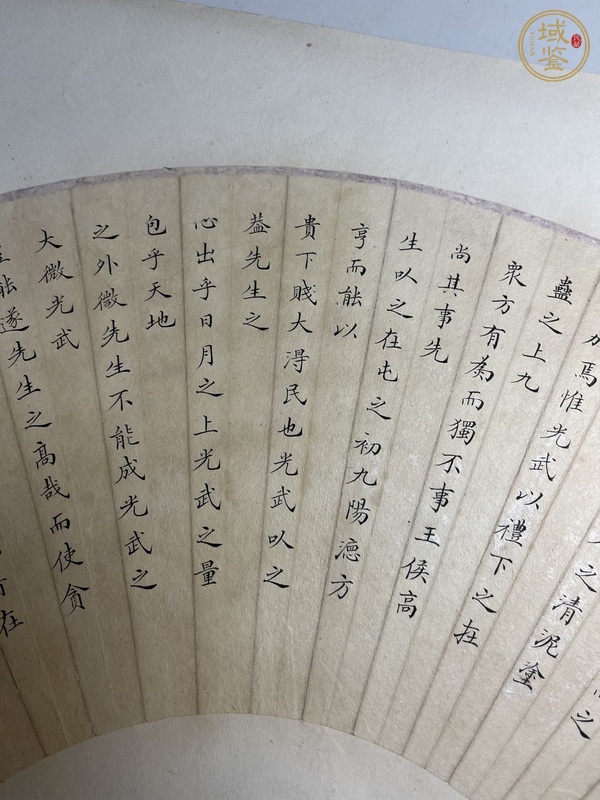 域鉴
YUJIAN
之
之清泥塗
加焉惟光武以禮下之在
蠱之上九
衆方有為而獨不事王侯高
尚其事先
生以之在屯之初九陽德方
亨而能以
貴下賤大得民也光武以之
葢先生之
心出乎日月之上光武之量
包乎天地
之外微先生不能成光武之
大微光武
能遂先生之高哉而使貪
在